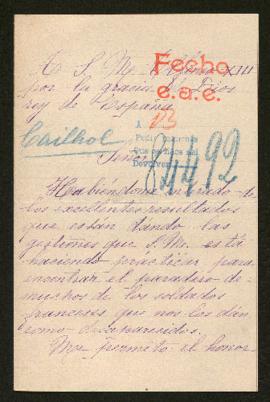 A S. M. Alfonso XIII
Fecho
por la gracia de Dios
e.a.e.
rey de España
A 23
Cailhol
Señor
84492
Habiéndome enterado de
los excelentes resultados
que están dando las
gestiones que S. M. está
haciendo practicar para
encontrar el paradero de
muchos de los soldados
franceses que nos los dán
como desaparecidos.
Me permito el honor